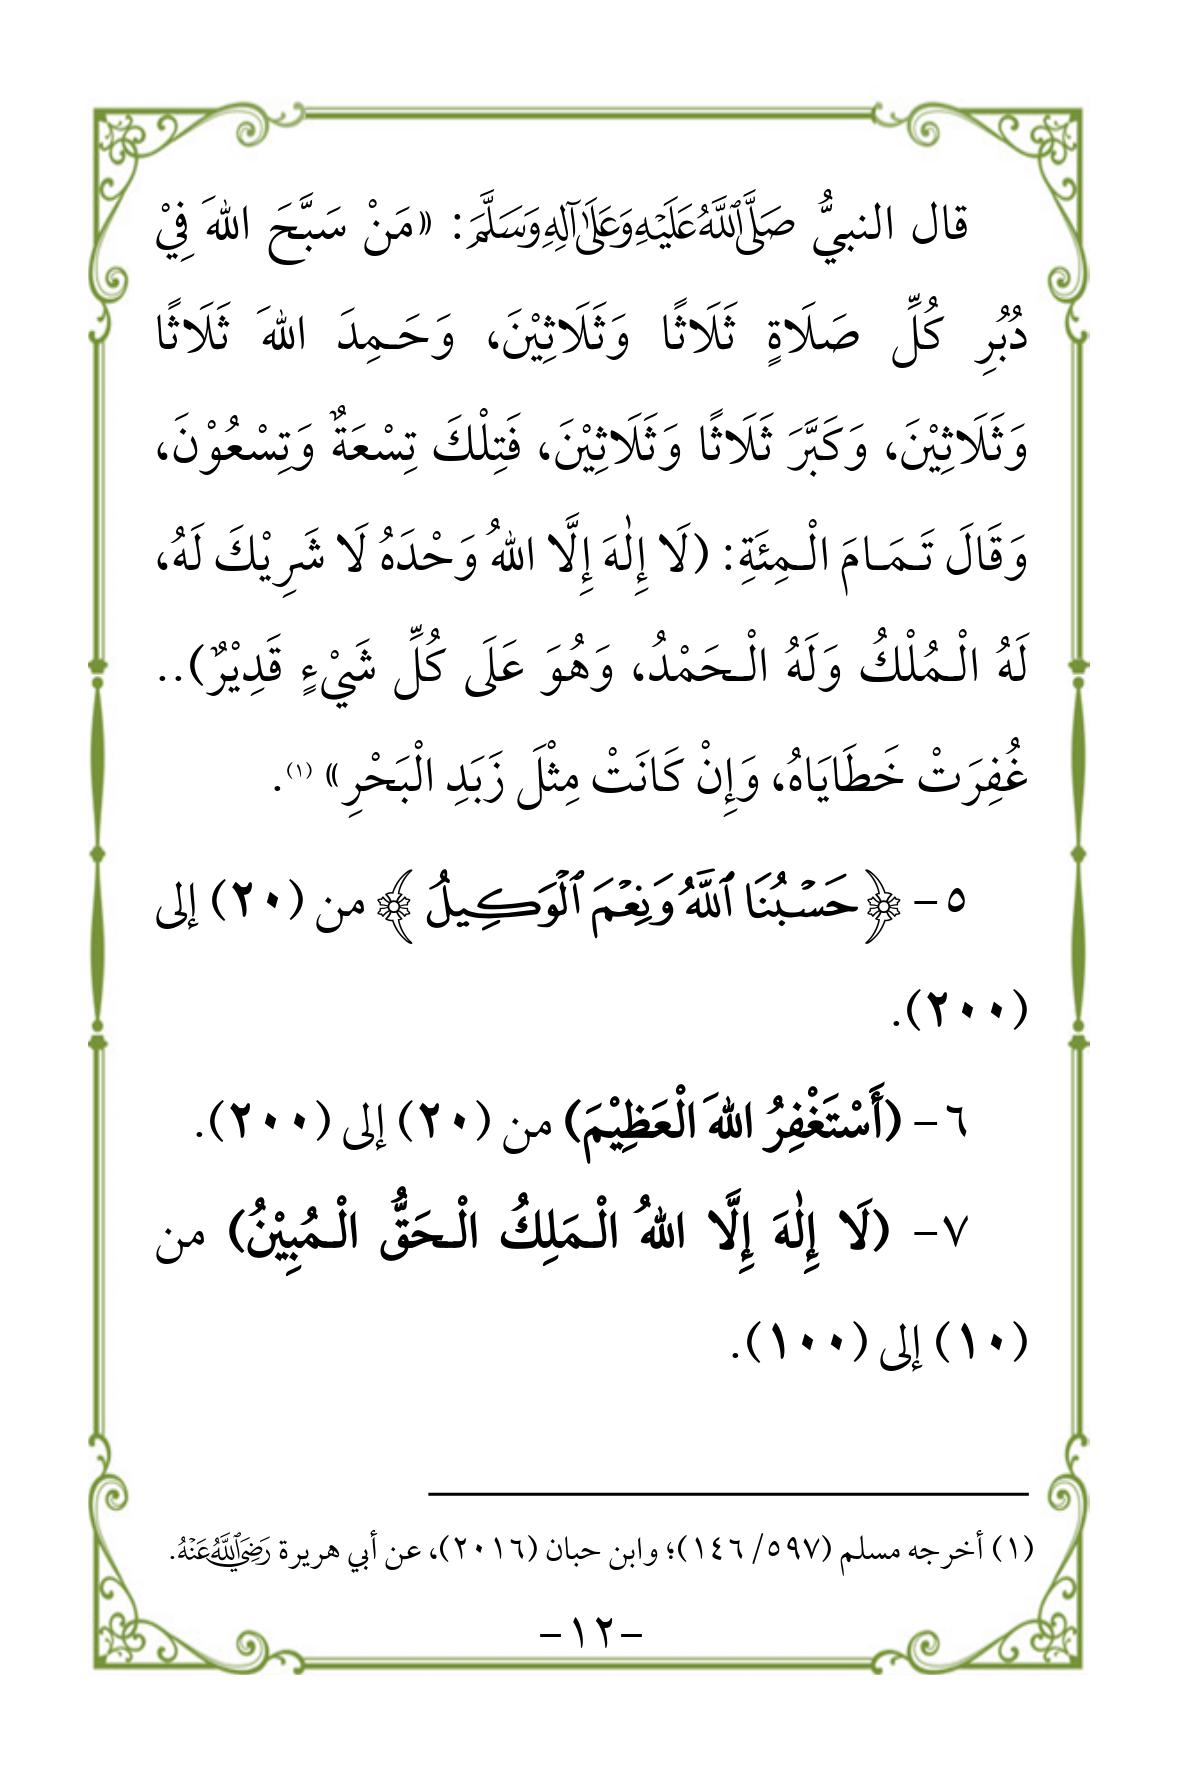 قال النبيُّ صَلَّى اللَّهُ عَلَيْهِ وَعَلَى آلِهِ وَسَلَّمَ: «مَنْ سَبَّحَ اللهَ فِيْ
دُبُرِ كُلِّ صَلَاةٍ ثَلَاثًا وَثَلَاثِيْنَ، وَحَـمِدَ اللهَ ثَلَاثًا
وَثَلَاثِيْنَ، وَكَبَّرَ ثَلَاثًا وَثَلَاثِيْنَ، فَتِلْكَ تِسْعَةٌ وَتِسْعُوْنَ،
وَقَالَ تَـمَـامَ الْـمِئَةِ: (لَا إِلٰهَ إِلَّا اللهُ وَحْدَهُ لَا شَرِيْكَ لَهُ،
لَهُ الْـمُلْكُ وَلَهُ الْـحَمْدُ، وَهُوَ عَلَى كُلِّ شَيْءٍ قَدِيْرٌ)..
غُفِرَتْ خَطَايَاهُ، وَإِنْ كَانَتْ مِثْلَ زَبَدِ الْبَحْرِ» (١).
٥- ﴿حَسْبُنَا ٱللَّهُ وَنِعْمَ ٱلْوَكِيلُ﴾ من (٢٠) إلى
(٢٠٠).
٦- (أَسْتَغْفِرُ اللهَ الْعَظِيْمَ) من (٢٠) إلى (٢٠٠).
٧- (لَا إِلٰهَ إِلَّا اللهُ الْـمَلِكُ الْـحَقُّ الْـمُبِيْنُ) من
(١٠) إلى (١٠٠).
(١) أخرجه مسلم (٥٩٧/ ١٤٦)؛ وابن حبان (٢٠١٦)، عن أبي هريرة رَضِيَ اللَّهُ عَنْهُ.
-١٢-